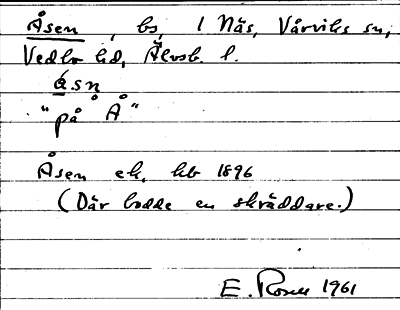 Åsen, bs, 1 Näs, Vårviks sn,
Vedbo hd, Älvsb. l.
åsn
"på Å"
Åsen ek, hb 1896
(Där bodde en skräddare.)
E. Rosell 1961